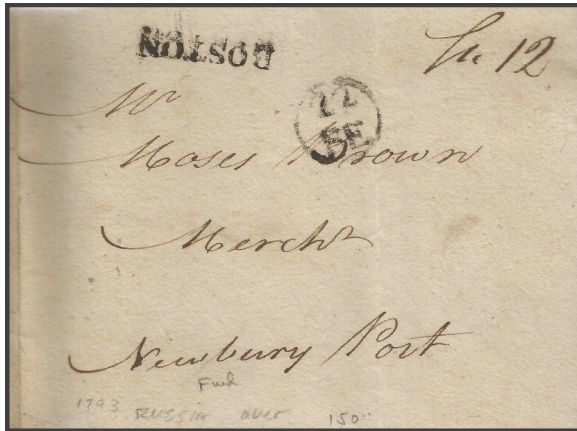 BOSTON
Sh 12
22
SE
Mr
Moses Brown
Mercht
Newbury Port
Fwd
1793 RUSSIA over 150